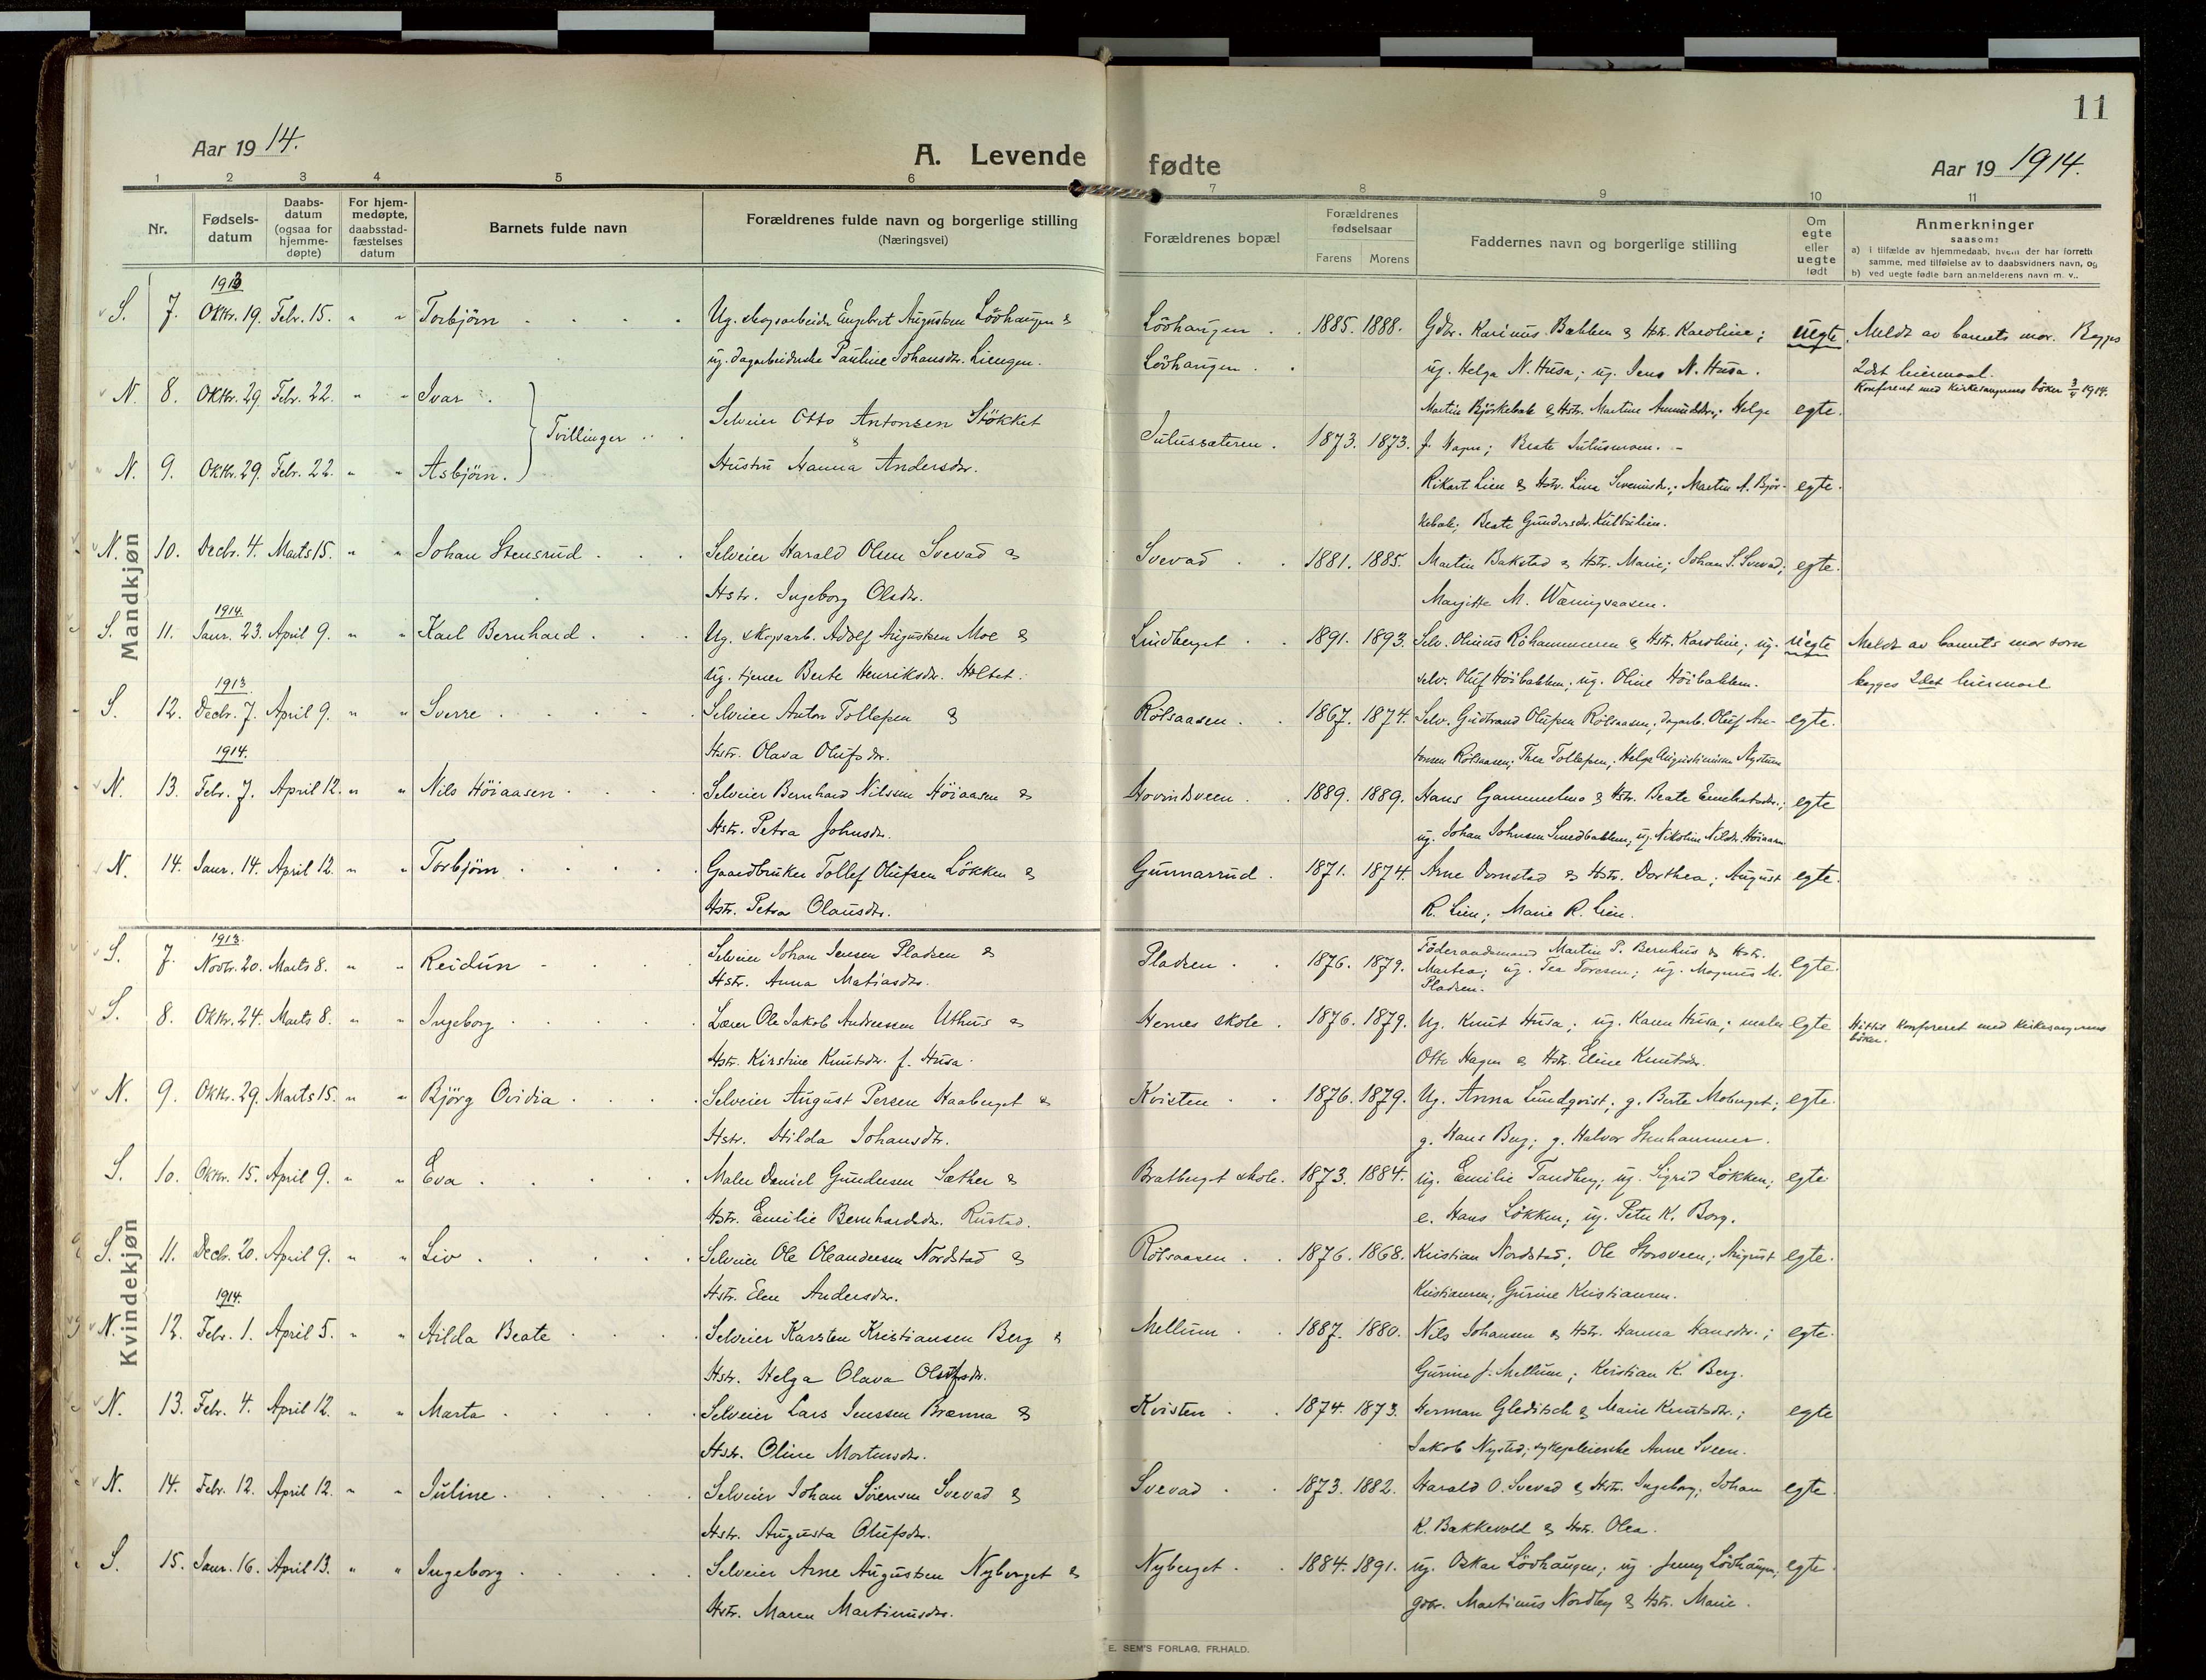 11
Aar 19 14.
A. Levende fødte
Aar 19 1914.
1 2 3 4 5 6 7 8 9 10 11
Nr.
Fødsels-
datum
Daabs-
datum
(ogsaa for
hjemme-
døpte)
For hjem-
medøpte,
daabsstad-
fæstelses
datum
Barnets fulde navn
Forældrenes fulde navn og borgerlige stilling
(Næringsvei)
Forældrenes bopæl
Forældrenes
fødselsaar
Farens Morens
Faddernes navn og borgerlige stilling
Om
egte
eller
uegte
født
Anmerkninger
saasom:
a) i tilfælde av hjemmedaab, hvem der har forrettet
samme, med tilføielse av to daabsvidners navn, og
b) ved uegte fødte barn anmelderens navn m. v.
Mandkjøn
1913
S. 7. Oktbr. 19. Febr. 15. " " Torbjörn Ug. skogsarbeider Engebret Augustsen Lövhaugen & Lövhaugen 1885. 1888. Gdbr. Karinus Bakken & Hstr. Karoline; uegte. Meldt av barnets mor. Begges
ug. dagarbeiderske Pauline Johansdtr. Liengen. Lövhaugen ug. Helga N. Husa; ug. Jens N. Husa. 2det leiermaal.
Konfereret med kirkesangerens böker 3/4 1914.
N. 8. Oktbr. 29. Febr. 22. " " Ivar. Martin Björkebak & Hstr. Martine; Helge egte.
Tvillinger Selveier Otto Antonsen Stökket & Julussæteren. 1873. 1873. J. Hagen; Beate Julusmoen.
N. 9. Oktbr. 29. Febr. 22. " " Asbjörn. Hustru Hanna Andersdtr. Rikart Lien & Hstr. Lina; Martin A. Björ- egte.
kebak; Beate Gundersdr. Kulbulien.
N. 10. Decbr. 4. Marts 15. " " Johan Stensrud Selveier Harald Olsen Svevad & Svevad 1881. 1885. Martin Bakstad & Hstr. Marie; Johan S. Svevad; egte.
Hstr. Ingeborg Olsdtr. Margitte M. Væringsaasen.
1914.
S. 11. Janr. 23. April 9. " " Karl Bernhard Ug. skogsarb. Adolf Augustsen Moe & Lindberget 1891. 1893. Selv. Olinus Röhammeren & Hstr. Karoline; ug. uegte Meldt av barnets mor som
Ug. tjener Berte Henriksdr. Holtet. selv. Oluf Höibakken; ug. Oline Höibakken. begges 2det leiermaal
1913
S. 12. Decbr. 7. April 9. " " Sverre Selveier Anton Tollefsen & Rölsaasen. 1867. 1874. Selv. Gudbrand Olufsen Rölsaasen; dagarb. Oluf An- egte.
Hstr. Olava Olufsdr. tonsen Rölsaasen; Thea Tollefsen; Helge
1914.
N. 13. Febr. 7. April 12. " " Nils Höiaasen Selveier Bernhard Nilsen Höiaasen & Hovindsveen. 1889. 1889. Hans Gammelmo & Hstr. Beate; egte
Hstr. Petra Johnsdr. ug. Johan Johnsen Smedbakken; ug. Nikoline Nilsdr. Höiaasen
N. 14. Janr. 14. April 12. " " Torbjörn Gaardbruker Tollef Olufsen Lökken & Gunnarrud. 1871. 1874. Arne Ornstad & Hstr. Dorthea; August egte.
Hstr. Petra Olausdr. R. Lien; Marie R. Lien.
Kvindekjøn
1913.
S. 7. Novbr. 20. Marts 8. " " Reidun Selveier Johan Jensen Pladsen & Pladsen 1876. 1879. Föderaadsmand Martin P. Bernhus & Hstr. egte.
Hstr. Anna Matiasdtr. Martea; ug. Tea Toresen; ug. Magnus M.
Pladsen.
S. 8. Oktbr. 24. Marts 8. " " Ingeborg Lærer Ole Jakob Andreassen Uthus & Hernes skole. 1876. 1879. Ug. Knut Husa; ug. Karen Husa; maler egte Hittil konfereret med kirkesangerens
böker.
Hstr. Kirstine Knutsdr. f. Husa. Otto Hagen & Hstr. Eline Knutsdr.
N. 9. Oktbr. 29. Marts 15. " " Björg Ovidia Selveier August Persen Haaberget & Kvisten 1876. 1879. Ug. Anna Lundqvist; g. Berte Moberget; egte.
Hstr. Hilda Johansdtr. g. Hans Berg; g. Halvor Stenhammer.
S. 10. Oktbr. 15. April 9. " " Eva Maler Daniel Gundersen Sæther & Bratberget skole. 1873. 1884. ug. Emilie Tandberg; ug. Sigrid Lökken; egte.
Hstr. Emilie Bernhardsdr. Rustad. e. Hans Lökken; ug. Peter K. Borg.
S. 11. Decbr. 20. April 9. " " Liv Selveier Ole Oleandersen Nordstad & Rölsaasen 1876. 1868. Kristian Nordstad; Ole Storsveen; August egte.
Hstr. Elen Andersdr. Kristiansen; Gurine Kristiansen.
1914.
N. 12. Febr. 1. April 5. " " Hilda Beate Selveier Karsten Kristiansen Berg & Mellum 1887. 1880. Nils Johansen & Hstr. Hanna Hansdr.; egte.
Hstr. Helga Olava Olufsdr. Gurine J. Mellum; Kristian K. Berg.
N. 13. Febr. 4. April 12. " " Marta Selveier Lars Jenssen Brænna & Kvisten 1874. 1873. Herman Gleditsch & Marie Knutsdr.; egte
Hstr. Oline Mortensdr. Jakob Nysted; sykepleierske Anne Sveen.
N. 14. Febr. 12. April 12. " " Juline. Selveier Johan Sörensen Svevad & Svevad 1873. 1882. Harald O. Svevad & Hstr. Ingeborg; Johan egte.
Hstr. Augusta Olufsdr. K. Bakkevold & Hstr. Olea.
S. 15. Janr. 16. April 13. " " Ingeborg Selveier Arne Augustsen Nyberget & Nyberget 1884. 1891. ug. Oskar Lövhaugen; ug. Jenny Lövhaugen; egte.
Hstr. Maren Martinusdr. gbr. Martinus Nordby & Hstr. Marie.
E. SEM'S FORLAG, FR.HALD.